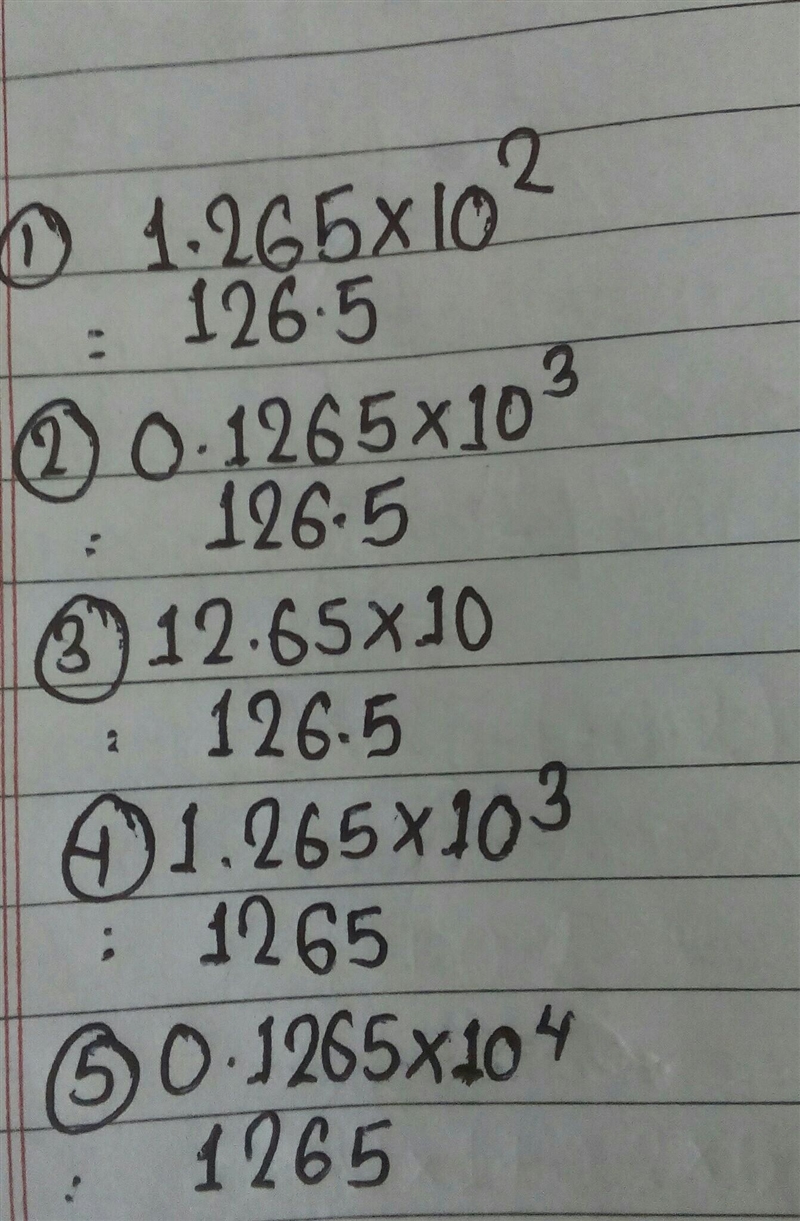 ① 1.265×10²
= 126.5
② 0.1265×10³
= 126.5
③ 12.65×10
= 126.5
④ 1.265×10³
= 1265
⑤ 0.1265×10⁴
= 1265